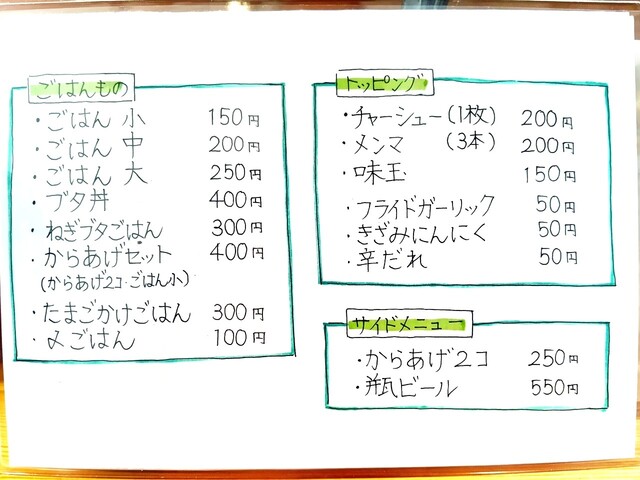 ごはんもの
・ごはん 小 150円
・ごはん 中 200円
・ごはん 大 250円
・ブタ丼 400円
・ねぎブタごはん 300円
・からあげセット 400円
(からあげ2コ・ごはん小)
・たまごかけごはん 300円
・〆ごはん 100円
トッピング
・チャーシュー(1枚) 200円
・メンマ (3本) 200円
・味玉 150円
・フライドガーリック 50円
・きざみにんにく 50円
・辛だれ 50円
サイドメニュー
・からあげ2コ 250円
・瓶ビール 550円